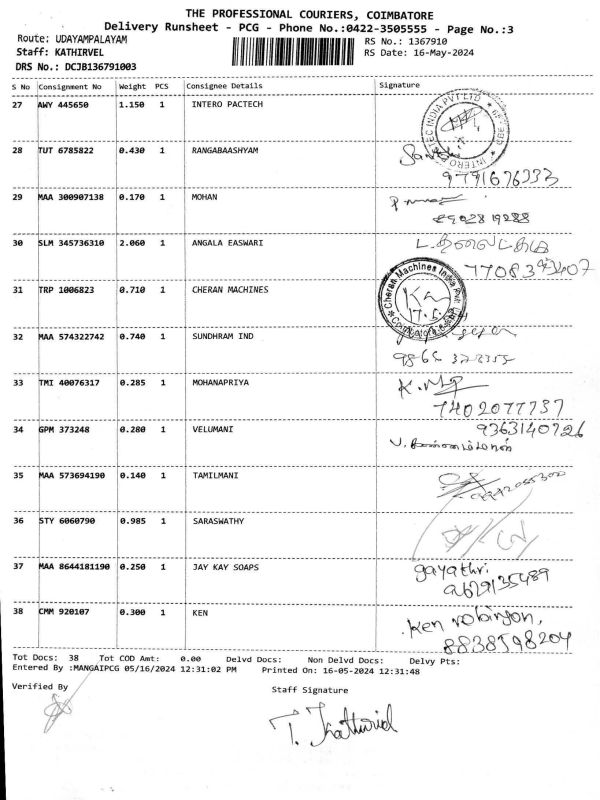 THE PROFESSIONAL COURIERS, COIMBATORE
Delivery Runsheet - PCG - Phone No.:0422-3505555 - Page No.:3
Route: UDAYAMPALAYAM
RS No.: 1367910
Staff: KATHIRVEL
RS Date: 16-May-2024
DRS No.: DCJB136791003
S No Consignment No Weight PCS Consignee Details Signature
27 AWY 445650 1.150 1 INTERO PACTECH
28 TUT 6785822 0.430 1 RANGABAASHYAM
9791676333
29 MAA 300907138 0.170 1 MOHAN
30 SLM 345736310 2.060 1 ANGALA EASWARI
31 TRP 1006823 0.710 1 CHERAN MACHINES
Cheran Machines India
32 MAA 574322742 0.740 1 SUNDHRAM IND
33 TMI 40076317 0.285 1 MOHANAPRIYA
7402077737
34 GPM 373248 0.280 1 VELUMANI
9363140726
35 MAA 573694190 0.140 1 TAMILMANI
36 STY 6060790 0.985 1 SARASWATHY
37 MAA 8644181190 0.250 1 JAY KAY SOAPS
gayathri
9629135489
38 CMM 920107 0.300 1 KEN
Ken robinson,
8838598204
Tot Docs: 38 Tot COD Amt: 0.00 Delvd Docs: Non Delvd Docs: Delvy Pts:
Entered By :MANGAIPCG 05/16/2024 12:31:02 PM Printed On: 16-05-2024 12:31:48
Verified By
Staff Signature
T. Kathirvel